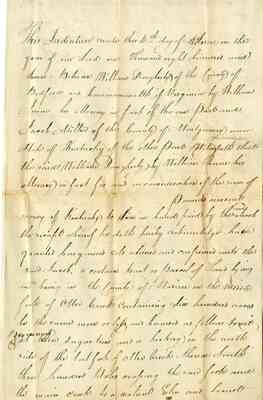 This Indenture made this 6th day of in the
year of our Lord one Thousand eight hundred and
three Between William Daugherty of the County of
Bedford and Commonwealth of Virginia by William
his Attorney in fact of the one Part and
Jacob of the County of Montgomery and
State of Kentucky of the other Part Witnesseth that
the said William Daugherty by William his
Attorney in fact for and in consideration of the sum of
Pounds current
money of Kentucky to him in hand paid by the said
the receipt whereof he doth hereby acknowledge have
granted bargained sold aliened and confirmed unto the
said Jacob, a certain tract or Parcel of Land lying
and being in the County of on the
fork of Otter Creek containing five hundred acres
be the same more or less and bounded as follows towit,
Beginning
at three Sugartrees and a hickory on the north
side of the fork of otter Creek thence South
three hundred Poles crossing the said fork and
the main creek to Elm and